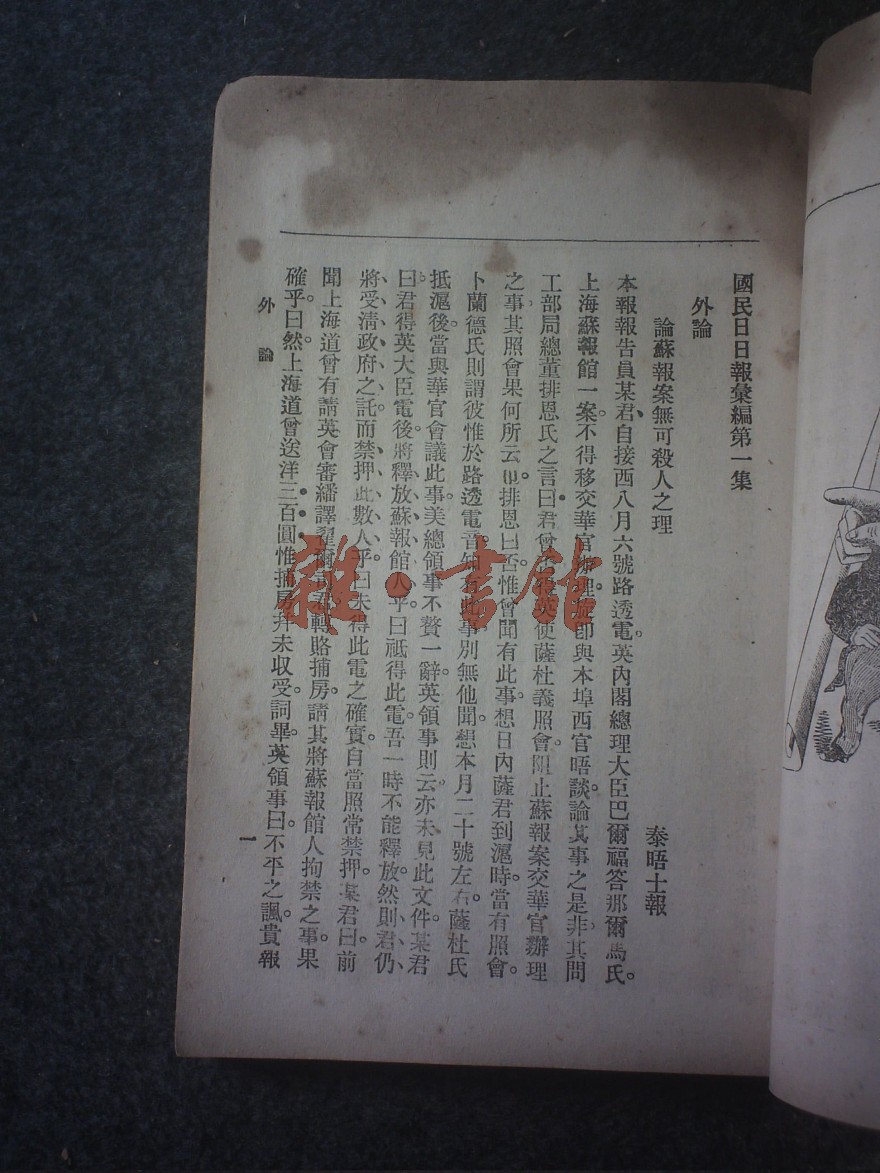 國民日日報彙編第一集
外論
論蘇報案無可殺人之理
泰晤士報
本報報告員某君、自接西八月六號路透電。英內閣總理大臣巴爾福答那爾馬氏。
上海蘇報館一案。不得移交華官辦理。旋即與本埠西官晤談。論其事之是非。其問
工部局總董排恩氏之言曰。君曾 英使薩杜義照會。阻止蘇報案交華官辦理
之事。其照會果何所云 排恩曰。否。惟曾聞有此事。想日內薩君到滬時。當有照會。
卜蘭德氏則謂彼惟於路透電音 此事。別無他聞。想本月二十號左右。薩杜氏
抵滬後。當與華官會議此事。美總領事不贅一辭。英領事則云。亦未見此文件。某君
曰。君得英大臣電後。將釋放蘇報館人乎。曰。祗得此電。吾一時不能釋放。然則君仍
將受清政府之託。而禁押此數人乎。曰。未得此電之確實。自當照常禁押。某君曰。前
聞上海道曾有請英會審繙譯翟爾 君轉賂捕房。請其將蘇報館人拘禁之事。果
確乎。曰。然。上海道曾送洋三百圓。惟捕房并未収受。詞畢。英領事曰。不平之諷。貴報
外論
一
雜·書館